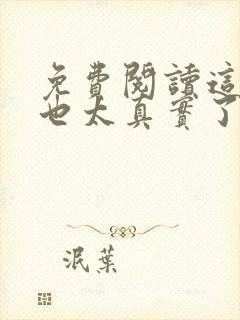 免費閱讀這
也太真實了
泯葉